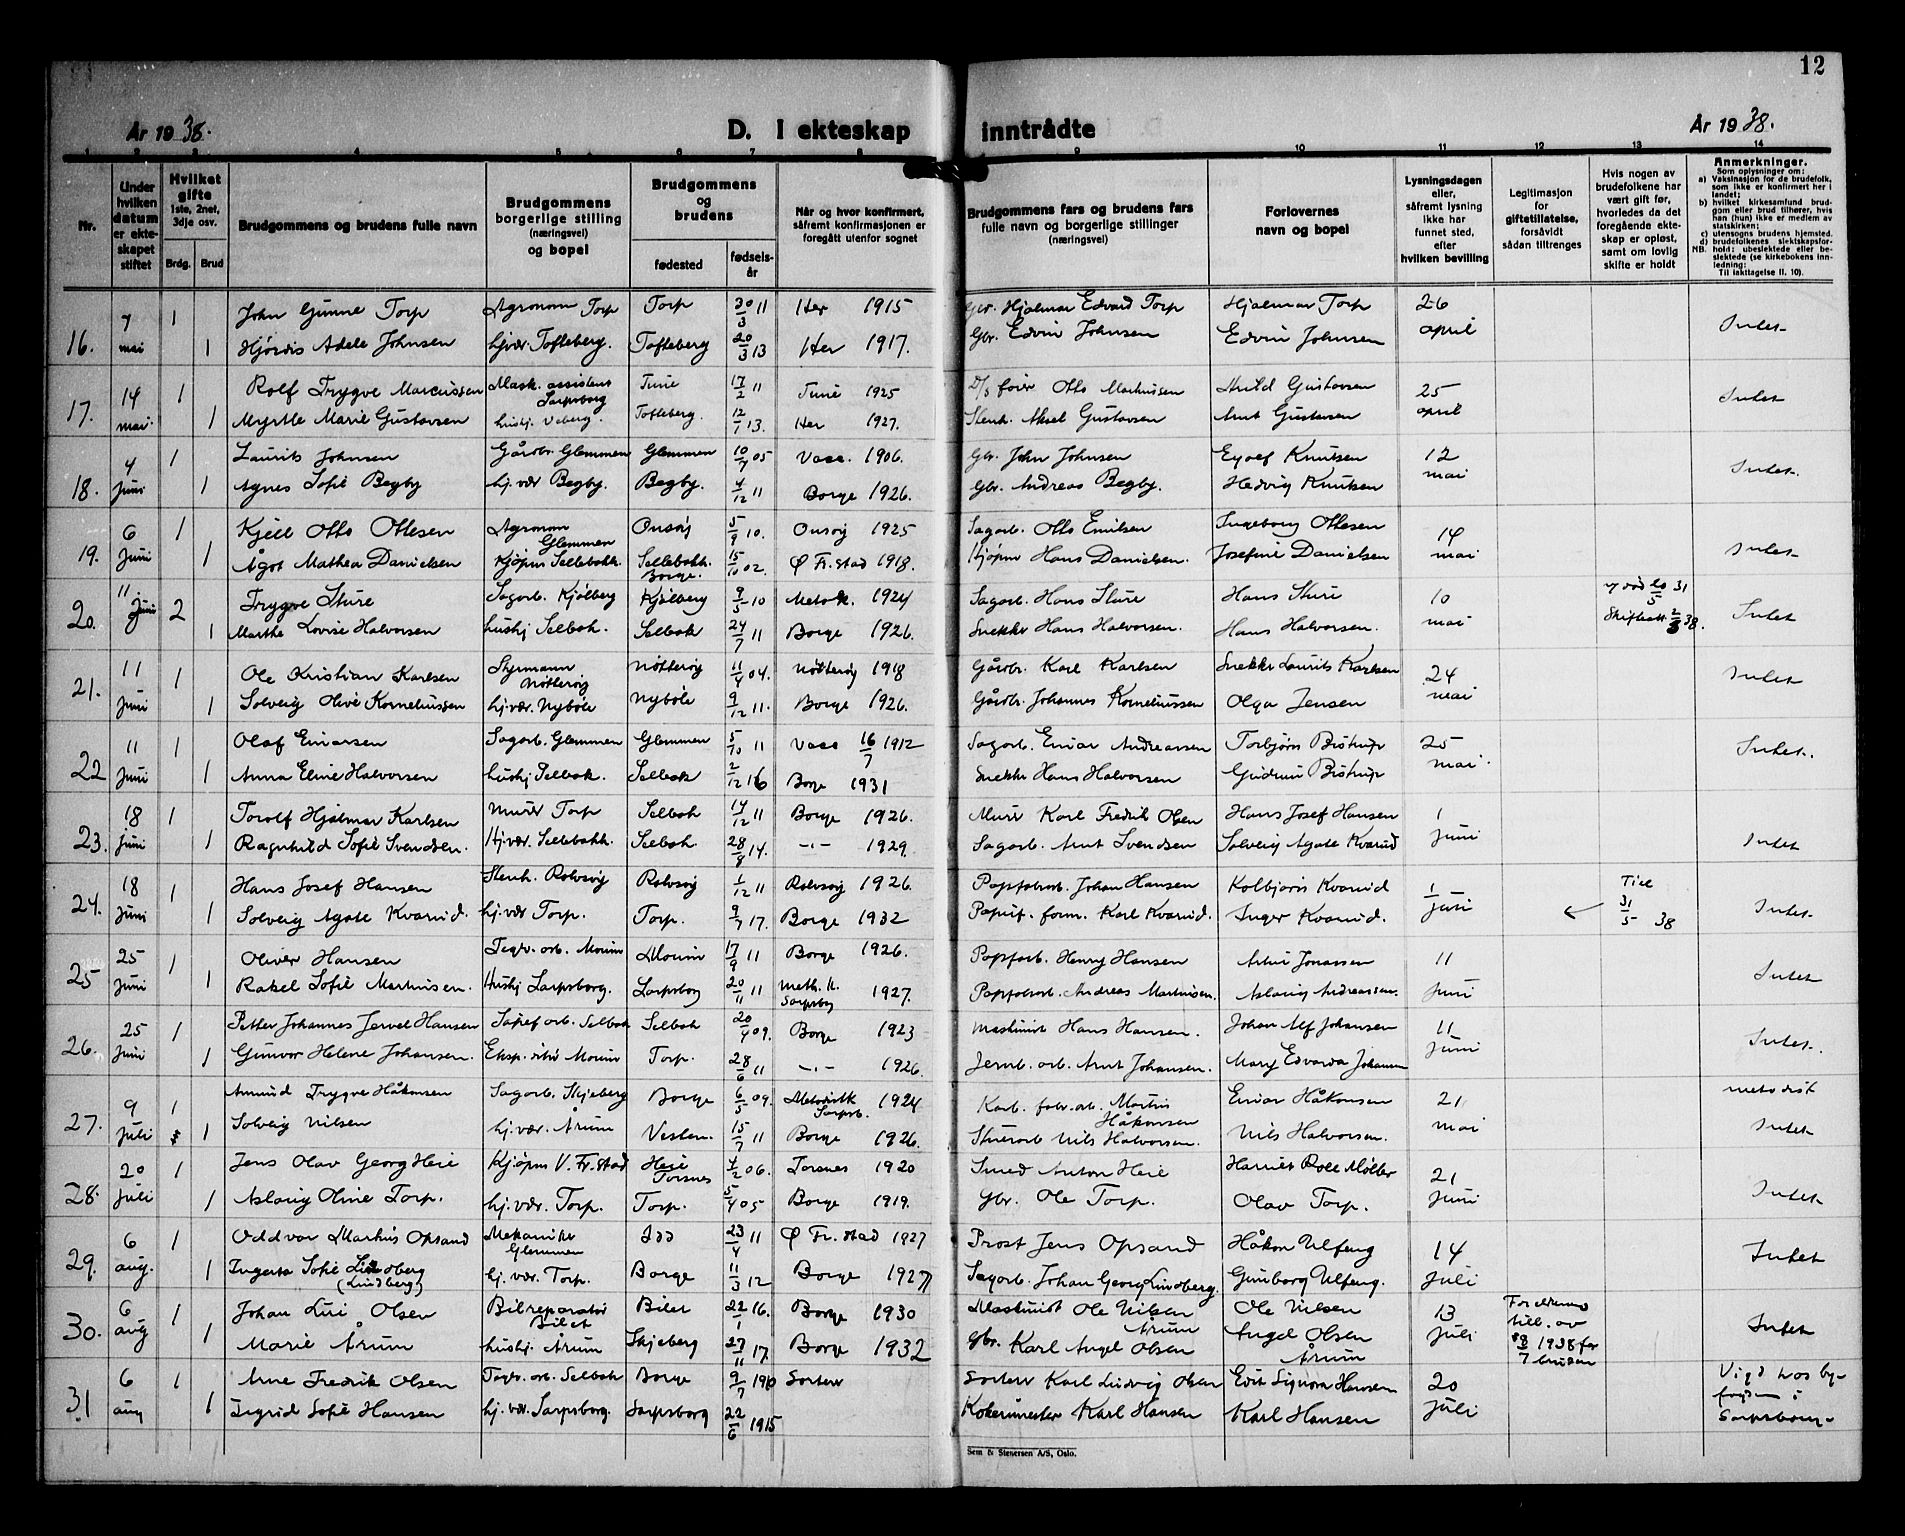 12
År 1938.
D. I ekteskap inntrådte
År 1938.
1 2 3 4 5 6 7 8 9 10 11 12 13 14
Nr.
Under hvilken datum er ekteskapet stiftet
Hvilket gifte 1ste, 2net, 3dje osv.
Brdg. Brud
Brudgommens og brudens fulle navn
Brudgommens borgerlige stilling (næringsvei) og bopel
Brudgommens og brudens
fødested
fødselsår
Når og hvor konfirmert, såfremt konfirmasjonen er foregått utenfor sognet
Brudgommens fars og brudens fars fulle navn og borgerlige stillinger (næringsvei)
Forlovernes navn og bopel
Lysningsdagen eller, såfremt lysning ikke har funnet sted, efter hvilken bevilling
Legitimasjon for giftetillatelse, forsåvidt sådan tiltrenges
Hvis nogen av brudefolkene har vært gift før, hvorledes da det foregående ekteskap er opløst, samt om lovlig skifte er holdt
Anmerkninger.
Som oplysninger om:
a) Vaksinasjon for de brudefolk, som ikke er konfirmert her i landet;
b) hvilket kirkesamfund brudgom eller brud tilhører, hvis han (hun) ikke er medlem av statskirken;
c) utensogns brudens hjemsted.
d) brudefolkenes slektskapsforhold: ubeslektede eller beslektede (se kirkebokens innledning:
NB. Til iakttagelse II. 10).
16. 7 mai 1 John Gunne Torp Agronom Torp Torp 30/3 11 Her 1915 Gbr. Hjalmar Edvard Torp Hjalmar Torp 26 april Intet
1 Hjørdis Adele Johnsen hj.vær. Tofteberg. Tofteberg 20/3 13 Her 1917. Gbr. Edvin Johnsen Edvin Johnsen
17. 14 mai. 1 Rolf Trygve Marcussen Mask. assistent Sarpsborg Tune 17/2 11 Tune 1925 Otto Markussen Gustavsen 25 april Intet
1 Myrtle Marie Gustavsen hushj. Veberg. Tofteberg. 12/1 13. Her 1927. Stenh. Aksel Gustavsen Arnt Gustavsen
18. 4 Juni 1 Laurits Johnsen Gårdbr. Glemmen Glemmen 10/7 05 1906. Gbr. John Johnsen Knutsen 12 mai Intet.
1 Agnes Sofie Begby hj. vær Begby. Begby. 4/12 11 Borge 1926. Gbr. Andreas Begby. Hedvig Knutsen
19. 6 Juni 1 Kjell Otto Ottesen Agronom Glemmen Onsøy 5/9 10. Onsøy 1925 Sagarb. Otto Emilsen Ingeborg Ottesen 14 mai Intet
1 Ågot Mathea Danielsen Kjøpm Sellebakk. Sellebakk. Borge. 15/10 02. Ø Fr.stad 1918. Kjøpm Hans Danielsen. Josefine Danielsen
20. 11. Juni 2 Trygve Sture Sagarb. Kjølberg Kjølberg 9/5 10 Metodk. 1924 Sagarb. Hans Sture Hans Sture 10 mai 20/5 31 Skifteatt. 38. Intet
1 Marthe Lovise Halvorsen hushj Selbak. Selbak 24/7 11 Borge 1926. Snekker Hans Halvorsen. Hans Halvorsen.
21. 11 Juni 1 Ole Kristian Karlsen Styrmann Nøtterøy Nøtterøy 11/4 04. Nøtterøy 1918 Gårdbr. Karl Karlsen Snekker Laurits Karlsen 24 mai Intet
1 Solveig Olive Korneliussen hj.vær. Nybøle Nybøle 9/12 11. Borge 1926. Gårdbr. Johannes Korneliussen Olga Jensen
22 11 Juni 1 Olaf Einarsen Sagarb. Glemmen Glemmen 5/10 11 16/7 1912 Sagarb. Einar Andreassen Torbjørn Bistrup 25 mai. Intet.
1 Anna Eline Halvorsen hushj Selbak. Selbak 2/12 16 Borge 1931 Snekker Hans Halvorsen Gudrun Bistrup
23. 18 Juni 1 Torolf Hjalmar Karlsen Murer Torp Selbak 14/12 11 Borge 1926. Murer Karl Fredrik Olsen Hans Josef Hansen 1 Juni Intet
1 Ragnhild Sofie Svendsen. Hj.vær. Sellebakk. Selbak 28/8 14. -"- 1929. Sagarb. Arnt Svendsen Solveig Agate Kvarud
24. 18 Juni 1 Hans Josef Hansen Stenh. Rolvsøy Rolvsøy 1/12 11 Rolvsøy 1926. Papfabarb. Johan Hansen Kolbjørn Kvarud 1/juni Till 31/5 38 Intet.
1 Solveig Agate Kvarud. hj. vær Torp. Torp. 9/7 17. Borge 1932 Papirf. form. Karl Kvarud. Inger Kvarud.
25 25 Juni 1 Oliver Hansen Teglv. arb. Moum Moum 17/9 11 Borge 1926. Papfarb. Henry Hansen Jonassen 11 Juni Intet
1 Rakel Sofie Martinsen. Hushj Sarpsborg. Sarpsborg 20/11 11 Meth. k. Sarpsbg 1927. Papfabarb. Andreas Martinsen. Aslaug Andreassen.
26. 25 Juni 1 Petter Johannes Jervel Hansen arb. Selbak Selbak 20/4 09. Borge 1923 Maskinist Hans Hansen. Johan Alf Johansen 11 Juni Intet.
1 Gunvor Helene Johansen. Eksp. Moum Torp. 28/6 11 -"- 1926. Jernb. arb. Arnt Johansen. Mary Edvarda Johansen
27. 9 Juli 1 Amund Trygve Håkonsen Sagarb. Skjeberg Borge 6/5 09. Metodistk Sarpsb. 1924 Karb. fabr. arb. Martin Håkonsen Einar Håkonsen 21 mai metodist
1 Solveig Nilsen hj. vær. Årum Vestem. 15/7 11 Borge 1926. Nils Halvorsen. Nils Halvorsen. Intet
28. 20 Juli 1 Jens Olav Georg Heie Kjøpm V. Fr.stad Heie Torsnes 4/2 06. Torsnes 1920 Smed Anton Heie Harriet Roll Møller 21 Juni Intet
1 Aslaug Oline Torp. hj. vær. Torp. Torp. 5/4 05 Borge 1919. Gbr. Ole Torp. Olav Torp.
29. 6 aug. 1 Oddvar Markus Opsand Mekaniker Glemmen Idd 23/4 11 Ø Fr. stad 1927 Prost Jens Opsand Håkon Ulfeng 14 Juli Intet
1 Ingerta Sofie (Lindberg) hj. vær. Torp. Borge 11/3 12 Borge 1927 Sagarb. Johan Georg Lindberg. Gunborg Ulfeng.
30. 6 aug 1 Johan Olsen Bilreparatør Bilet Bilet 22/1 16. Borge 1930 Maskinist Ole Nilsen Årum Ole Nilsen 13 Juli Foreldrenes till. av 8/7 1938 for bruden Intet
1 Marie Årum hushj. Årum Skjeberg 27/11 17. Borge 1932 Gbr. Karl Angel Olsen Angel Olsen Årum
31 6 aug 1 Arne Fredrik Olsen Tegv. arb. Selbak Borge 9/7 1910 Sorterer Sorterer Karl Ludvig Olsen Edit Signora Hansen 20 Juli Vigd hos byfogden i Sarpsborg
1 Ingrid Sofie Hansen hj. vær Sarpsborg. Sarpsborg 22/6 1915 Kokerimester Karl Hansen Karl Hansen
Sem & Stenersen A/S, Oslo.